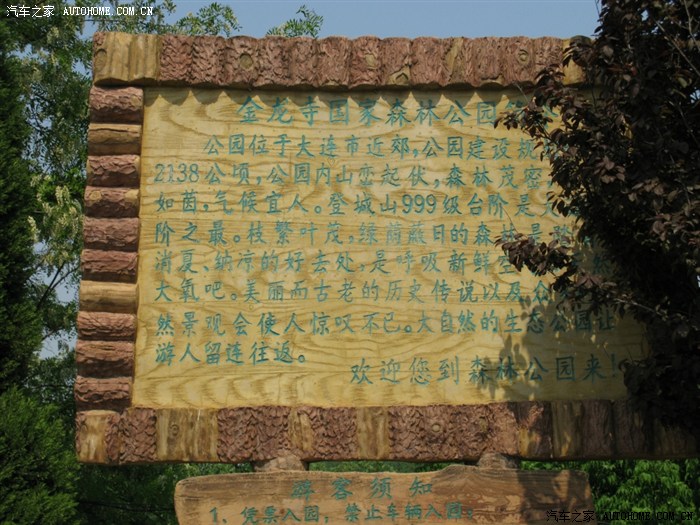 汽车之家 AUTOHOME.COM.CN
金龙寺国家森林公园简
公园位于大连市近郊,公园建设规
2138公顷,公园内山峦起伏,森林茂密
如茵,气候宜人。登城山999级台阶是
阶之最。枝繁叶茂,绿荫蔽日的森林是
消夏、纳凉的好去处,是呼吸新鲜空
大氧吧。美丽而古老的历史传说以及众
然景观会使人惊叹不已。大自然的生态公园让
游人留连往返。
欢迎您到森林公园来!
游客须知
1、凭票入园,禁止车辆入园。
汽车之家 AUTOHOME.COM.CN